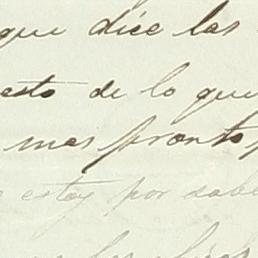 que dice las
esto de lo que
mas pronto p
estoy por sabe